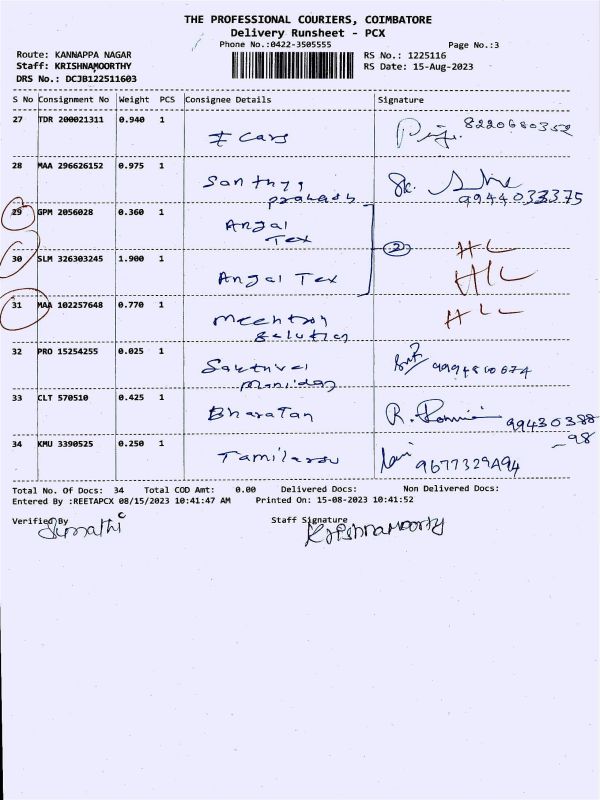 THE PROFESSIONAL COURIERS, COIMBATORE
Delivery Runsheet - PCX
Phone No.:0422-3505555 Page No.:3
Route: KANNAPPA NAGAR RS No.: 1225116
Staff: KRISHNAMOORTHY RS Date: 15-Aug-2023
DRS No.: DCJB122511603
S No Consignment No Weight PCS Consignee Details Signature
27 TDR 200021311 0.940 1 I Cars 8220680352
28 MAA 296626152 0.975 1 Santhya
prakash 9944033375
29 GPM 2056028 0.360 1 Angal
Tex HL
30 SLM 326303245 1.900 1 Angal Tex 2 HL
31 MAA 102257648 0.770 1 HL
32 PRO 15254255 0.025 1 Sakthivel 9994810674
33 CLT 570510 0.425 1 Bharatan 99430388
-98
34 KMU 3390525 0.250 1 Tamilarasu 9677329494
Total No. Of Docs: 34 Total COD Amt: 0.00 Delivered Docs: Non Delivered Docs:
Entered By :REETAPCX 08/15/2023 10:41:47 AM Printed On: 15-08-2023 10:41:52
Verified By Staff Signature
Sumathi Krishnamoorthy